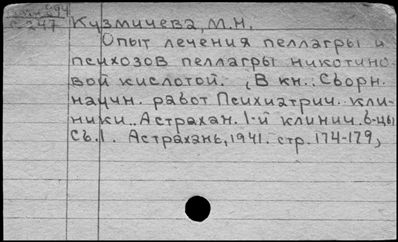 С 247 Кузмичева, М.Н.
Опыт лечения пеллагры и
психозов пеллагры никотино
вой кислотой. (В кн.: Сборн.
научн. работ Психиатрич. кли-
ники.. Астрахан. 1-й клинич. б-цы
Сб. 1. Астрахань, 1941. стр. 174-179)